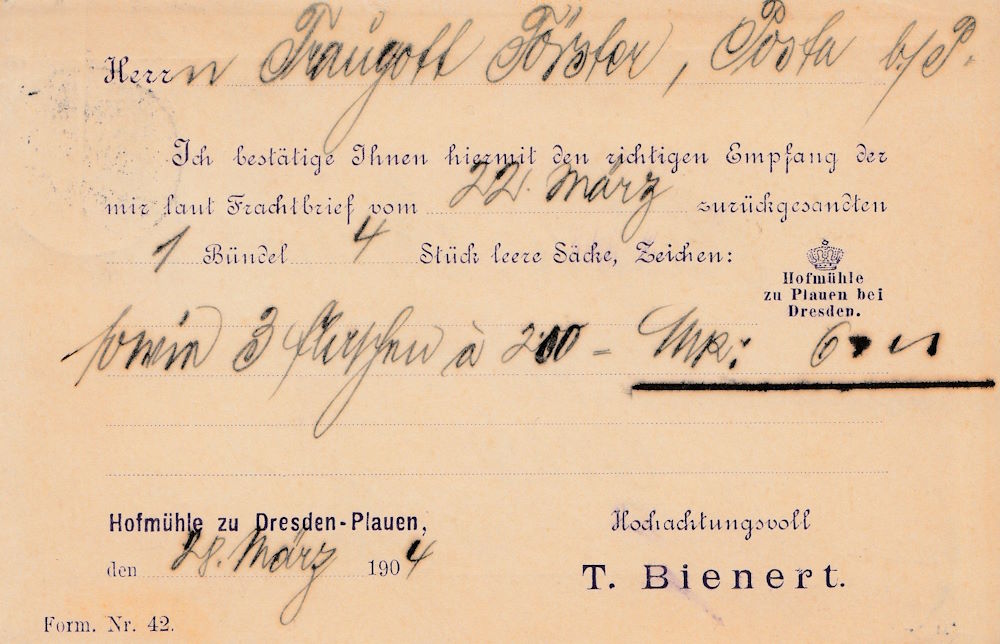 Herrn Traugott Förster, Posta b/P.
Ich bestätige Ihnen hiermit den richtigen Empfang der
mir laut Frachtbrief vom 22. März zurückgesandten
1 Bündel 4 Stück leere Säcke, Zeichen:
Hofmühle
zu Plauen bei
Dresden.
sowie 3 à 2.00 = Mk: 6
Hofmühle zu Dresden-Plauen,
den 28. März 1904
Hochachtungsvoll
T. Bienert.
Form. Nr. 42.